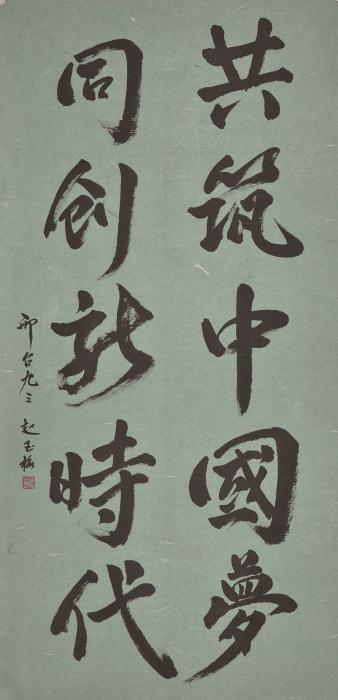 共筑中國夢
同創新時代
邢台九三 赵玉梅